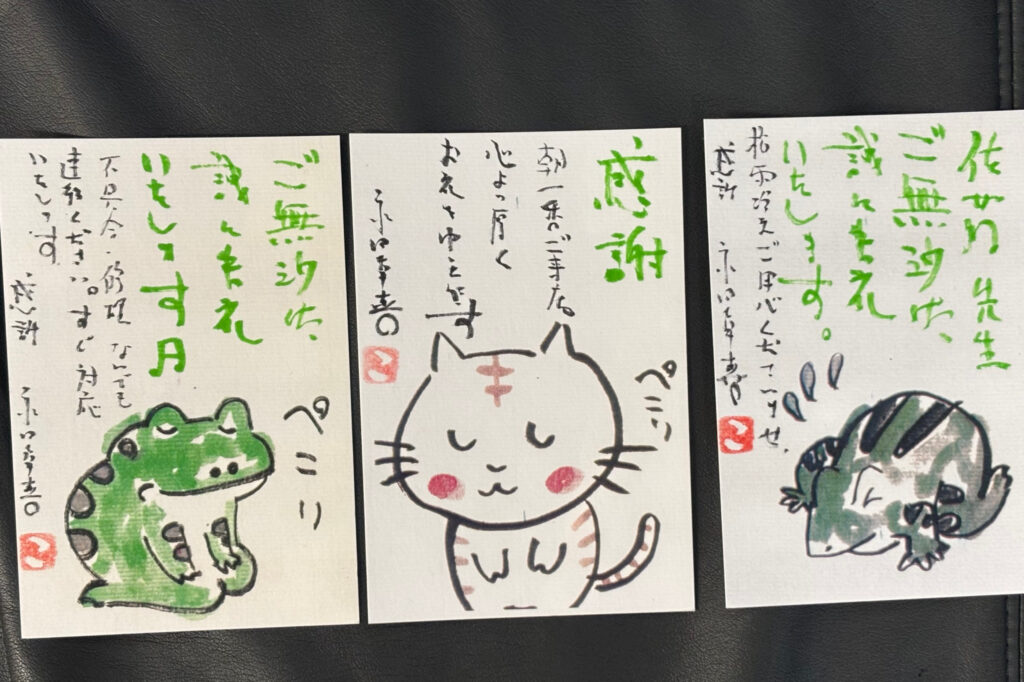 ご無沙汰、
誠に失礼
いたします
不具合・修理 なんでも
連絡ください。すぐ対応
いたします
感謝
ペコリ
感謝
朝一番のご来店。
心より厚く
お礼を申し上げます
ペコリ
先生
ご無沙汰、
誠に失礼
いたします。
ご用心くださいませ。
感謝